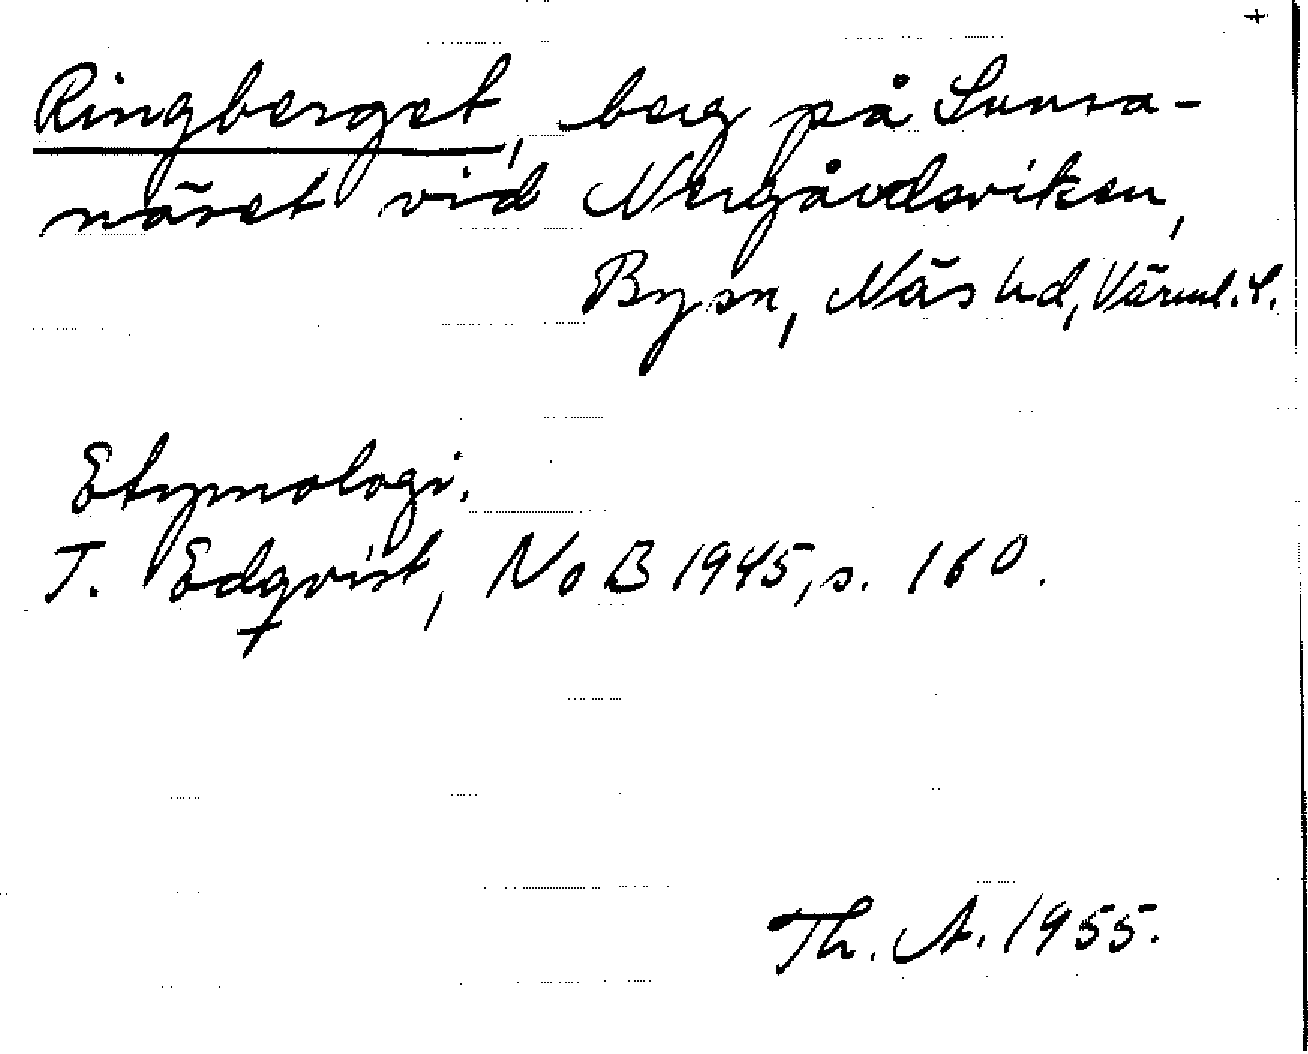 +
Ringberget, berg på Sunsa-
näset vid Nergårdsviken,
By sn, Näs hd, Värml. l.
Etymologi.
T. Edqvist, NoB 1945, s. 160.
Th. A. 1955.